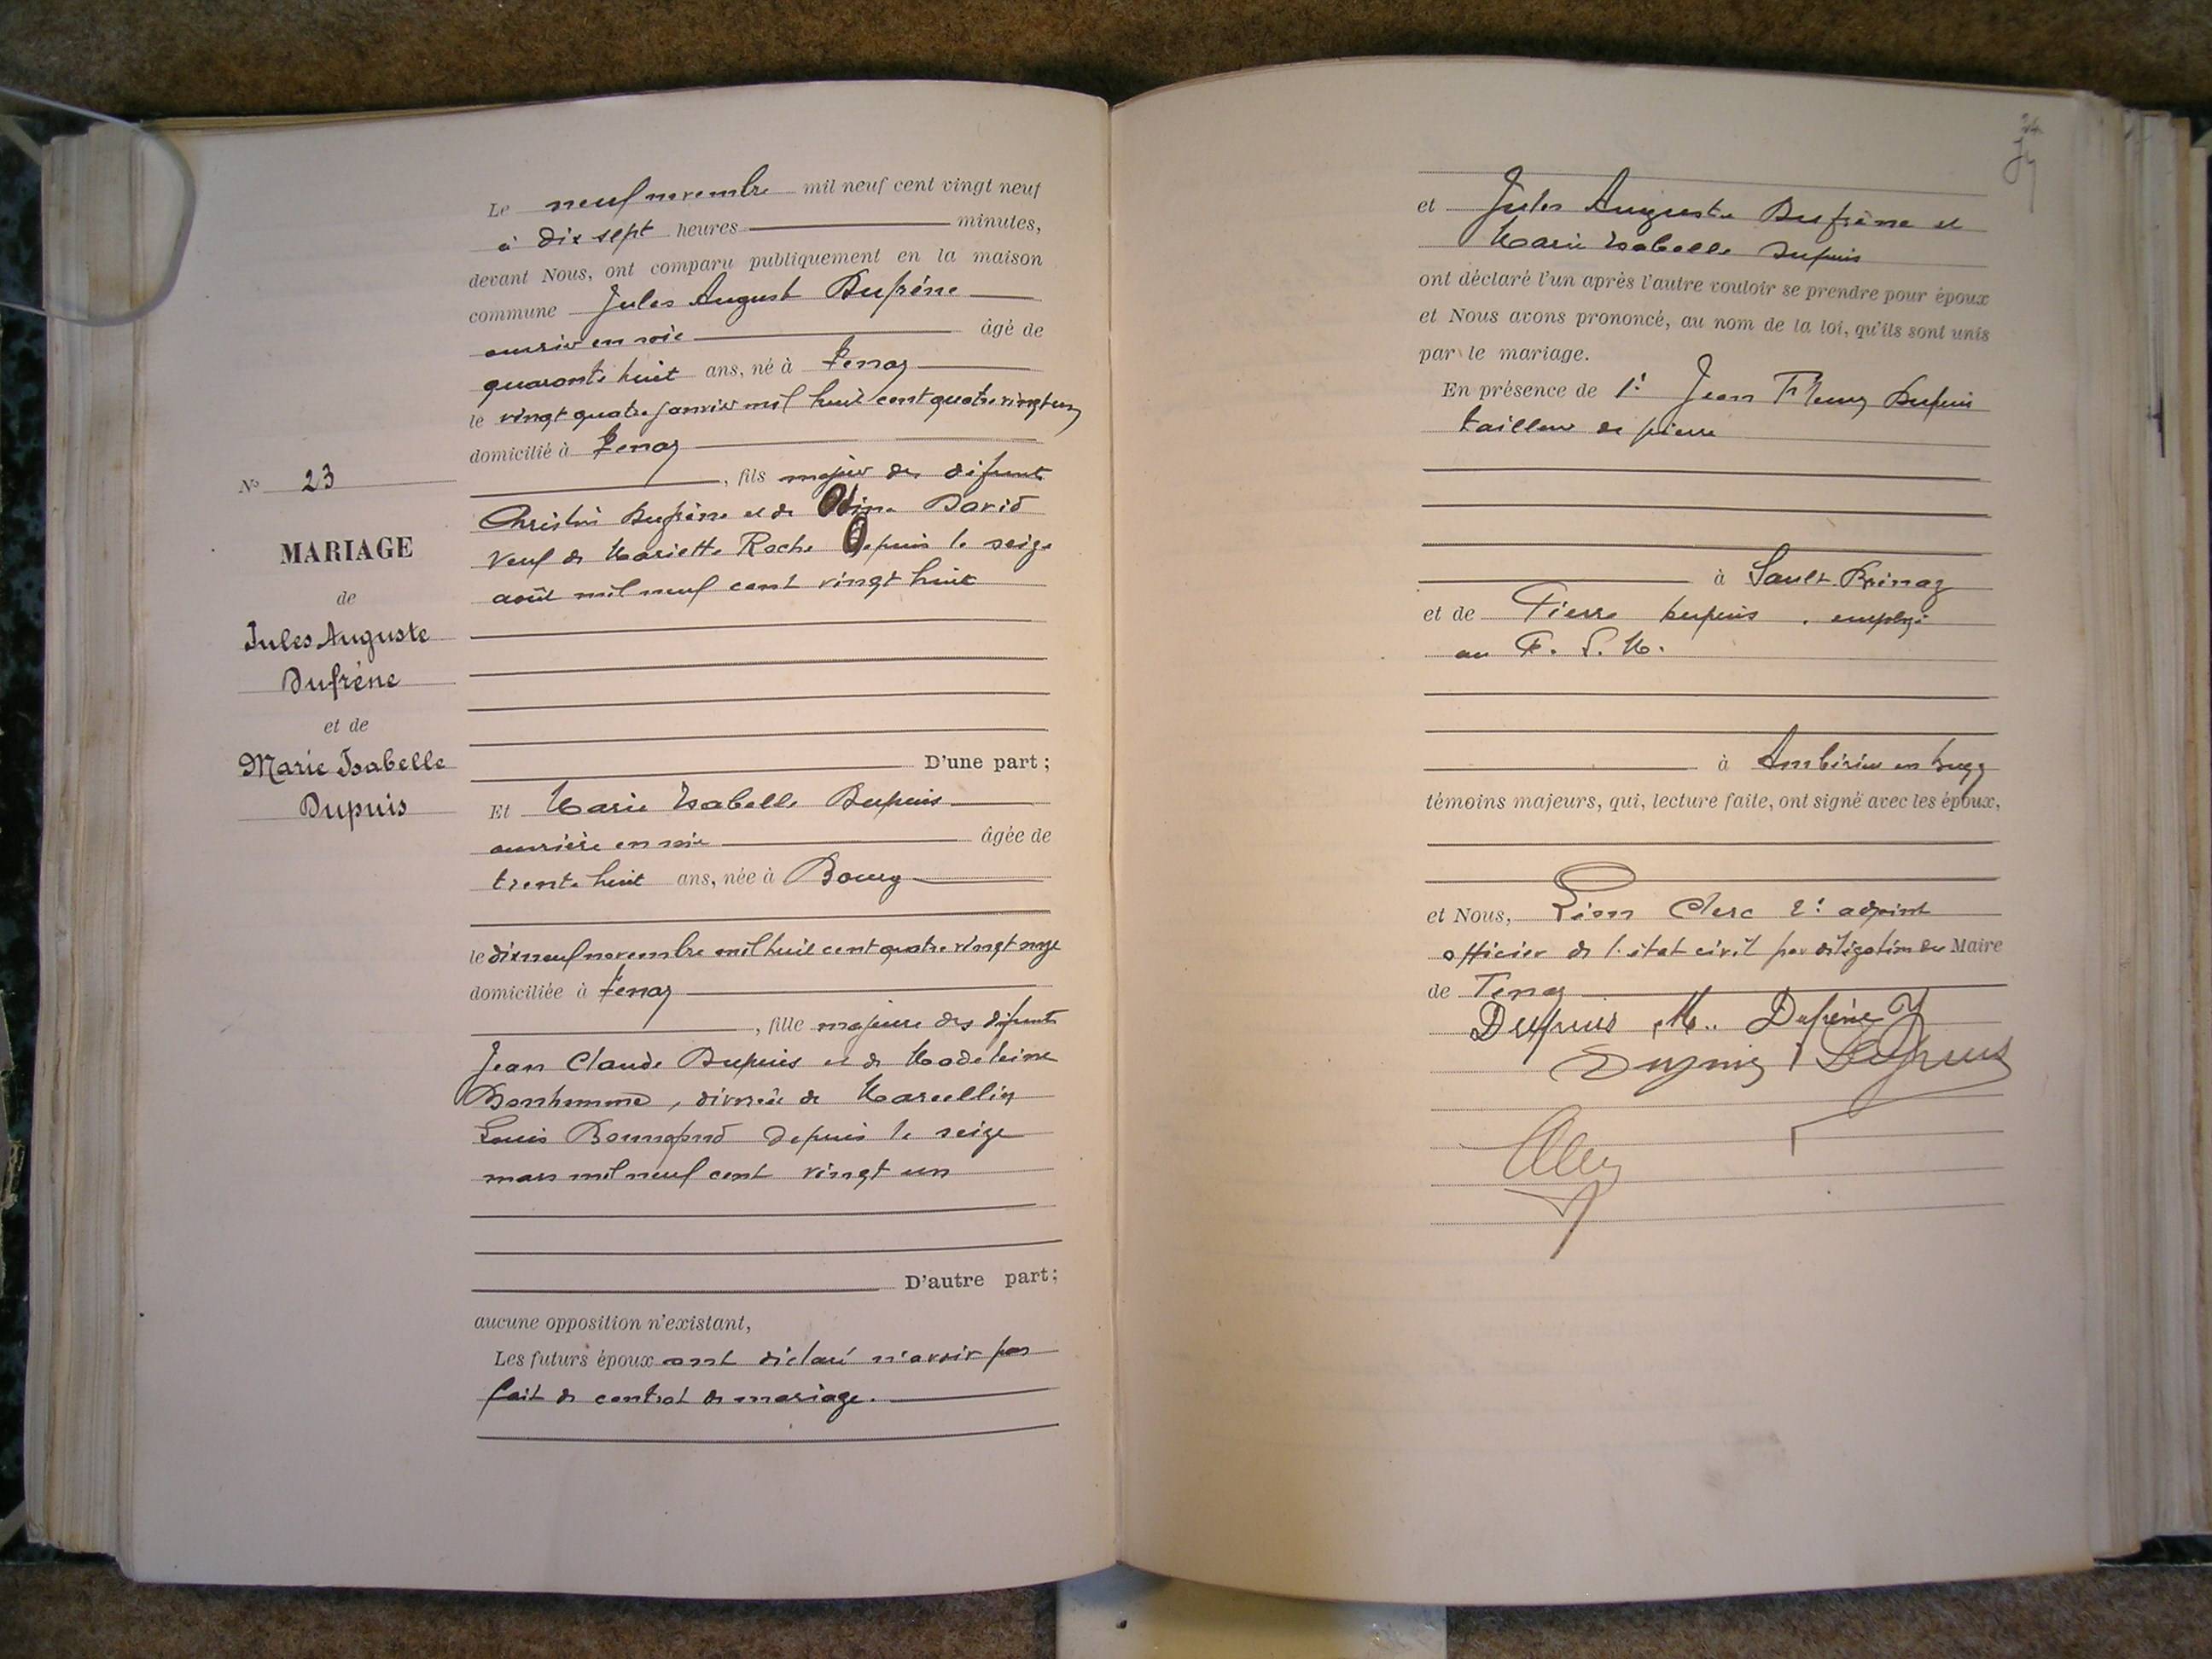 Le neuf novembre mil neuf cent vingt neuf
à dix sept heures minutes,
devant Nous, ont comparu publiquement en la maison
commune Jules August Dufrêne
ouvrier en soie âgé de
quarante huit ans, né à Tenay
le vingt quatre janvier mil huit cent quatre vingt un
domicilié à Tenay
, fils majeur des défunts
Dufrène et de David
veuf de Mariette Roche depuis le seize
août mil neuf cent vingt huit
D'une part ;
No 23
MARIAGE
de
Jules Auguste
Dufrène
et de
Marie Isabelle
Dupuis
Et Marie Isabelle Dupuis
ouvrière en soie âgée de
trente huit ans, née à Bourg
le dix neuf novembre mil huit cent quatre vingt onze
domiciliée à Tenay
, fille majeure des défunts
Jean Claude Dupuis et de Madeleine
Bonhomme, divorcée de Marcellin
Louis depuis le seize
mars mil neuf cent vingt un
D'autre part ;
aucune opposition n'existant,
Les futurs époux ont déclaré n'avoir pas
fait de contrat de mariage.
et Jules Auguste Dufrène et
Marie Isabelle Dupuis
ont déclaré l'un après l'autre vouloir se prendre pour époux
et Nous avons prononcé, au nom de la loi, qu'ils sont unis
par le mariage.
En présence de 1º Jean Dupuis
tailleur de pierre
à Sault Brénaz
et de Pierre Dupuis, employé
au P. L. M.
à Ambérieu en bugey
témoins majeurs, qui, lecture faite, ont signé avec les époux,
et Nous, Léon Clerc 2e adjoint
officier de l'état civil par délégation du Maire
de Tenay
Dupuis M.. Dufrène J
Dupuis J Dupuis